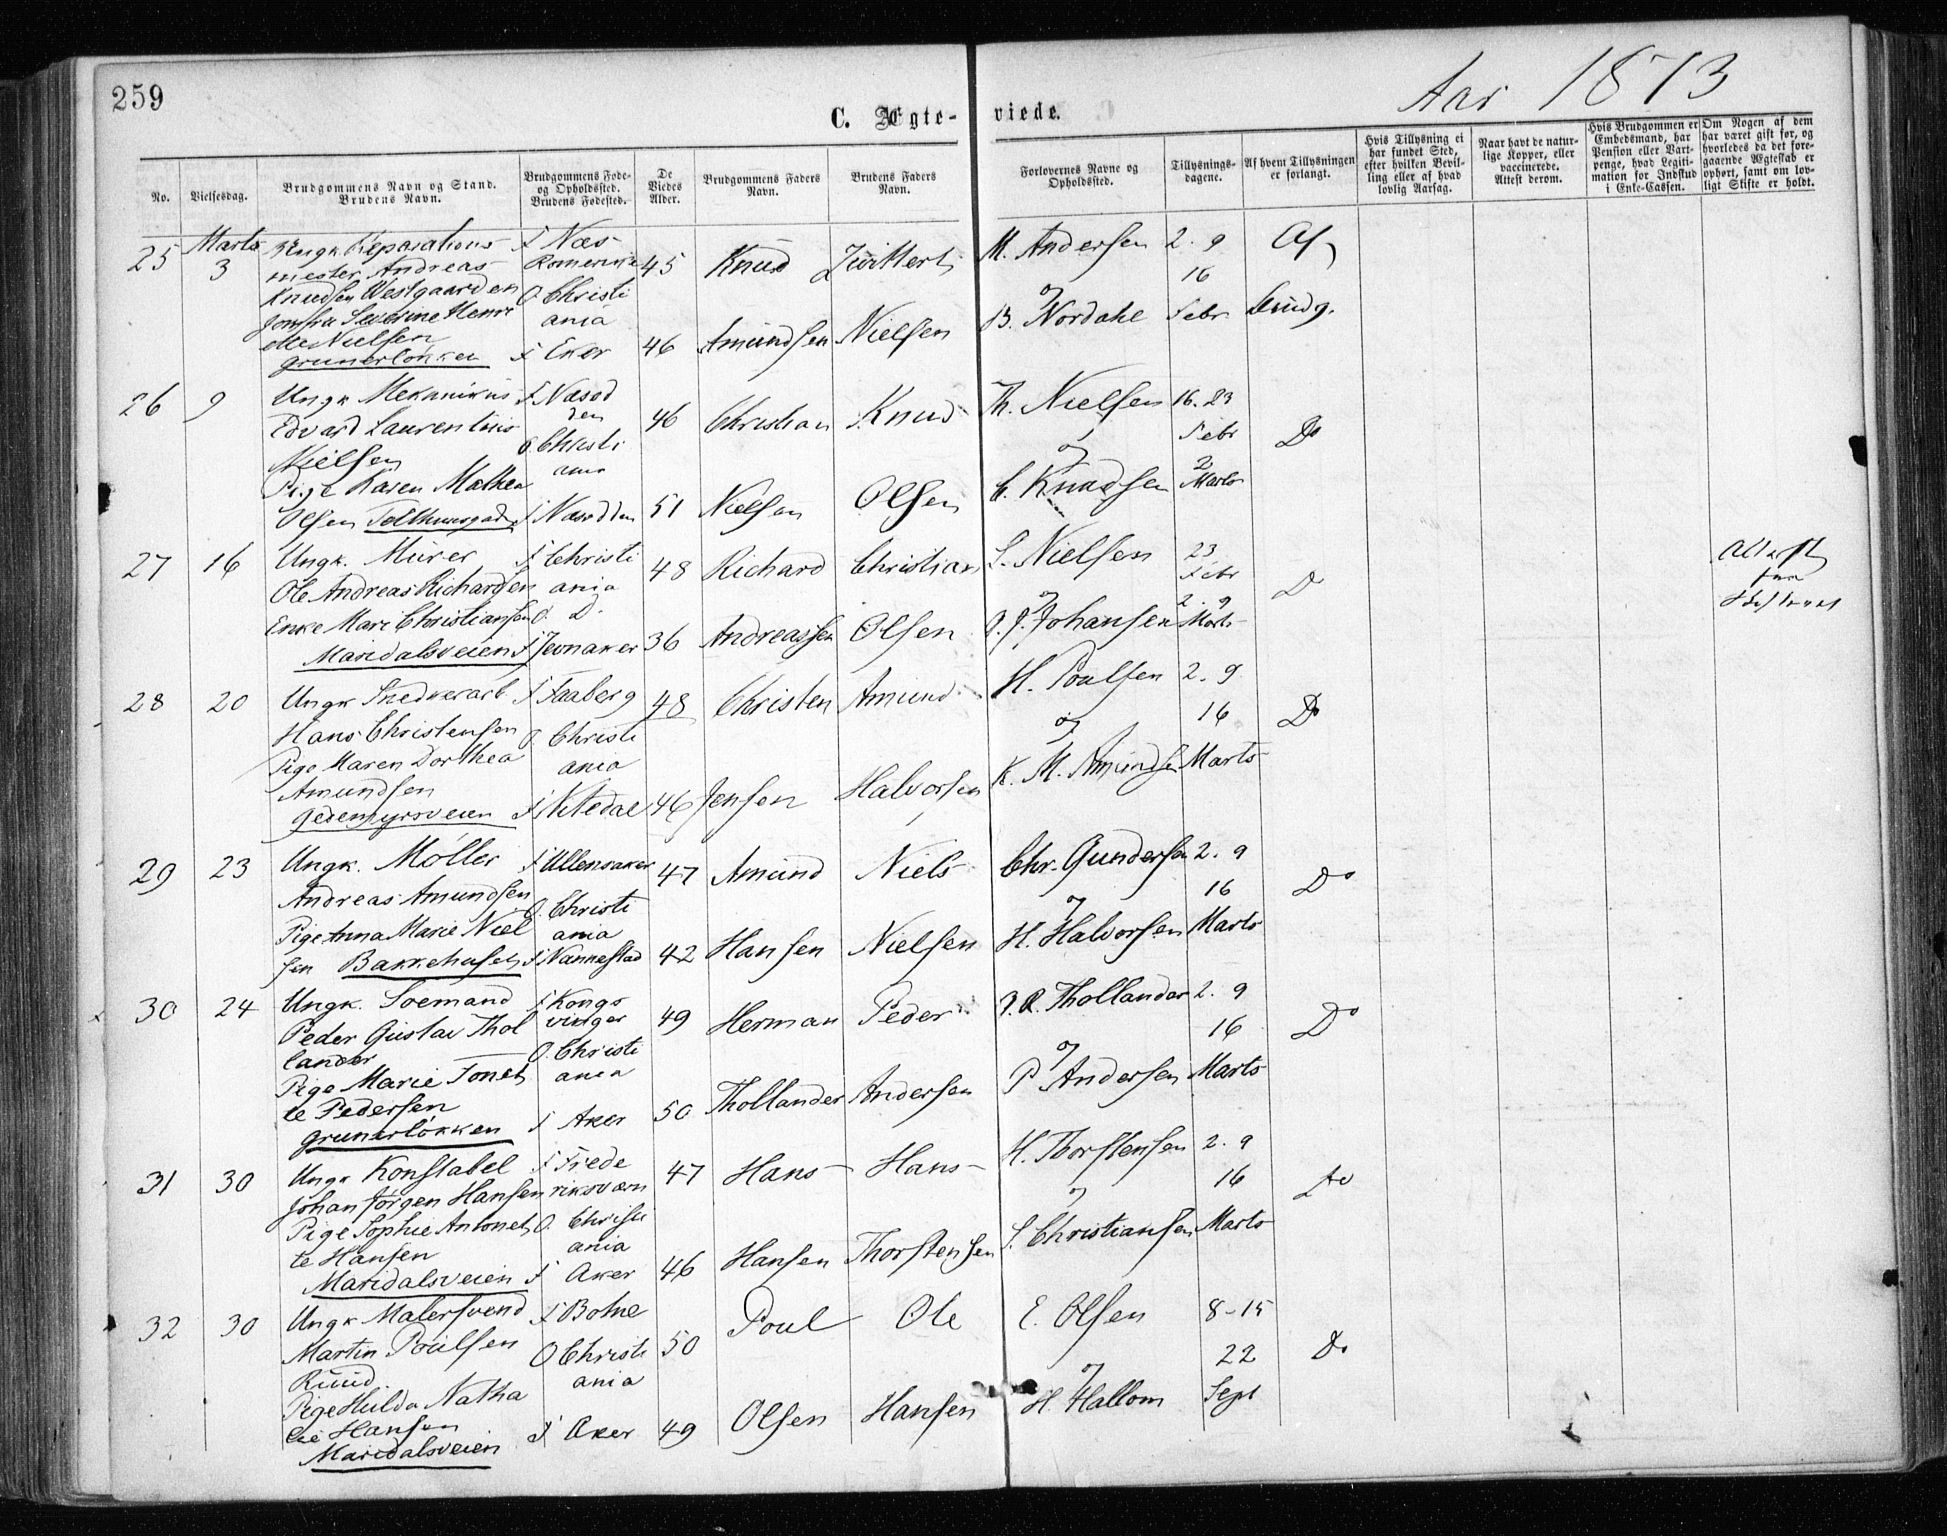 259
Aar 1873
C. Ægte-
viede.
No.
Vielsesdag.
Brudgommens Navn og Stand.
Brudens Navn.
Brudgommens Føde-
og Opholdssted.
Brudens Fødested.
De
Viedes
Alder.
Brudgommens Faders
Navn.
Brudens Faders
Navn.
Forlovernes Navne og
Opholdssted.
Tillysnings-
dagene.
Af hvem Tillysningen
er forlangt.
Hvis Tillysning ei
har fundet Sted,
efter hvilken Bevil-
ling eller af hvad
lovlig Aarsag.
Naar havt de natur-
lige Kopper, eller
vaccinerede.
Attest derom.
Hvis Brudgommen er
Embedsmand, har
Pension eller Vart-
penge, hvad Legiti-
mation for Indskud
i Enke-Cassen.
Om Nogen af dem
har været gift før, og
hvorledes da det fore-
gaaende Ægteskab er
ophørt, samt om lov-
ligt Skifte er holdt.
25 Marts 3
Ungk Reparations
mester Andreas
Knudsen Westgaarden
Jomfru Severine Henri
ette Nielsen
Grunerløkken
F Næs
Romerike
O Christi
ania
F Eker
45
46
Knud
Amundsen
Nielsen
M. Andersen
og
B. Nordahl
2. 9
16
Febr
Af
Brudg.
26 9
Ungk Mekanikus
Edvard Laurentius
Nielsen
Pige Karen Mathea
Olsen
F Nesod
den
O. Christi
ania
F Nesodden
46
51
Christian
Nielsen
Knud
Olsen
Th. Nielsen
og
C. Knudsen
16. 23
Febr
2
Marts
Do
27 16
Ungk. Murer
Ole Andreas Richardsen
Enke Mari Christiansen
Maridalsveien
F Christi
ania
O. D.
F Jevnaker
48
36
Richard
Andreassen
Christian
Olsen
L. Nielsen
og
J. Johansen
23
Febr
2. 9
Marts
D
Attest
fra
Skifteret
28 20
Ungk Snedkerarb
Hans Christensen
Pige Maren Dorthea
Amundsen
Gedemyrsveien
F Faaberg
O. Christi
ania
F Nitedal
48
46
Christen
Jensen
Amund
Halvorsen
H. Poulsen
og
K. M. Amundsen
2. 9
16
Marts
Do
29 23
Ungk. Møller
Andreas Amundsen
Pige Anna Marie Niel
sen Bakkehuset
F Ullensaker
O. Christi
ania
F Nannestad
47
42
Amund
Hansen
Niels
Nielsen
Chr. Gundersen
og
H. Halvorsen
2. 9
16
Marts
Do
30 24
Ungk. Soemand
Peder Gustav Thol
lander
Pige Marie Tonet
te Pedersen
Grunerløkken
F Kongs
vinger
O. Christi
ania
F Aker
49
50
Herman
Thollander
Peder
Andersen
Thollander
og
P Andersen
2. 9
16
Marts
Do
31 30
Ungk Konstabel
Johan Jørgen Hansen
Pige Sophie Antonet
te Hansen
Maridalsveien
F Frede
riksværn
O. Christi
ania
F Aker
47
46
Hans
Hansen
Hans
Thorstensen
H. Thorstensen
og
S. Christiansen
2. 9
16
Marts
Do
32 30
Ungk Malersvend
Martin Poulsen
Ruud.
Pige Hulda Natha
lie Hansen
Maridalsveien
F Botne
O Christi
ania
F Aker
50
49
Poul
Olsen
Ole
Hansen
E. Olsen
og
H. Hallom
8-15
22
Sept
Do